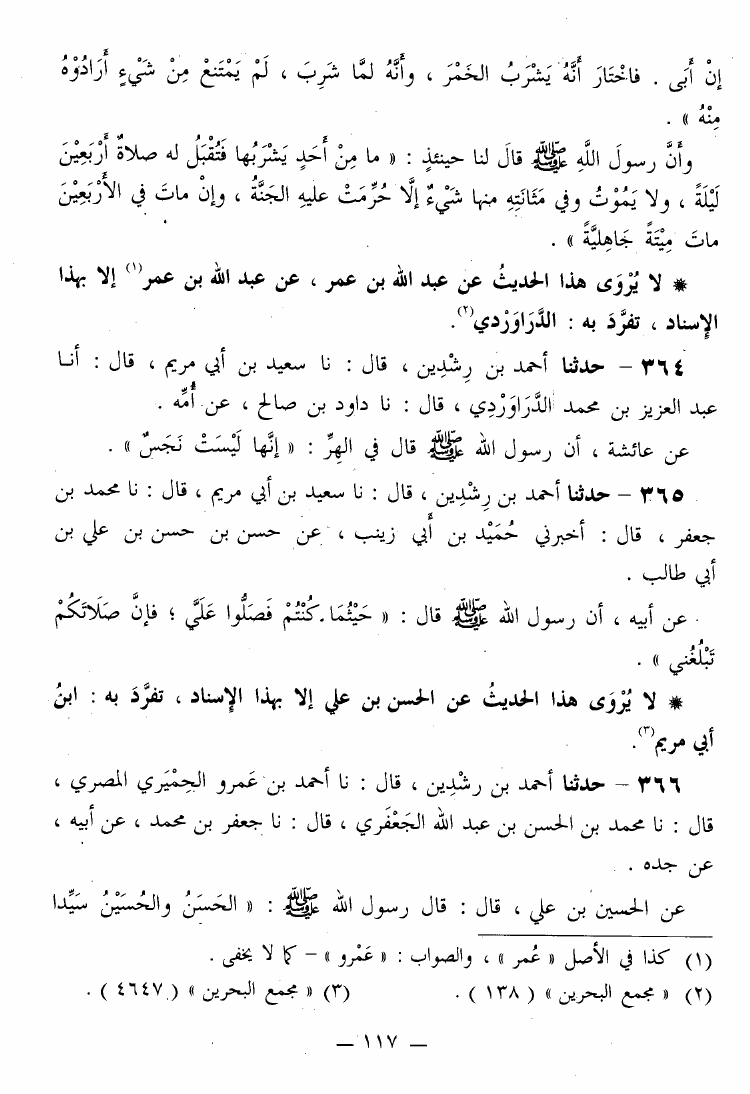 إنْ أَبَى . فاخْتَارَ أَنَّهُ يَشْرَبُ الخَمْرَ ، وأَنَّهُ لمَّا شَرِبَ ، لَمْ يَمْتَنِعْ مِنْ شَيْءٍ أَرَادُوْهُ
مِنْهُ » .
وأَنَّ رسولَ اللَّهِ ﷺ قالَ لنا حينئذٍ : « ما مِنْ أَحَدٍ يَشْرَبُها فَتُقْبَلُ له صلاةٌ أَرْبَعِيْنَ
لَيْلَةً ، ولا يَمُوْتُ وفي مَثَانَتِهِ منها شَيْءٌ إلَّا حُرِّمَتْ عليهِ الجَنَّةُ ، وإنْ ماتَ في الأَرْبَعِيْنَ
ماتَ مِيْتَةً جَاهِليَّةً » .
* لا يُرْوَى هذا الحديثُ عن عبد الله بن عمر ، عن عبد الله بن عمر(١) إلا بهذا
الإسناد ، تفرَّدَ به : الدَّرَاوَرْدي(٢).
٣٦٤ – حدثنا أحمد بن رِشْدِين ، قال : نا سعيد بن أبي مريم ، قال : أنا
عبد العزيز بن محمد الدَّرَاوَرْدِي ، قال : نا داود بن صالح ، عن أُمِّه .
عن عائشة ، أن رسول الله ﷺ قال في الهِرِّ : « إنَّها لَيْسَتْ نَجَسٌ » .
٣٦٥ – حدثنا أحمد بن رِشْدِين ، قال : نا سعيد بن أبي مريم ، قال : نا محمد بن
جعفر ، قال : أخبرني حُمَيْد بن أَبي زينب ، عن حسن بن حسن بن علي بن
أبي طالب .
عن أبيه ، أن رسول الله ﷺ قال : « حَيْثُمَا كُنْتُمْ فَصَلُّوا عَلَيَّ ؛ فإنَّ صَلَاتَكُمْ
تَبْلُغُني » .
* لا يُرْوَى هذا الحديثُ عن الحسن بن علي إلا بهذا الإسناد ، تفرَّدَ به : ابنُ
أبي مريم(٣).
٣٦٦ – حدثنا أحمد بن رشْدِين ، قال : نا أحمد بن عَمرو الحِمْيَري المصري ،
قال : نا محمد بن الحسن بن عبد الله الجَعْفَري ، قال : نا جعفر بن محمد ، عن أبيه ،
عن جده .
عن الحسين بن علي ، قال : قال رسول الله ﷺ : « الحَسَنُ والحُسَيْنُ سَيِّدا
(١) كذا في الأصل « عُمر » ، والصواب : « عَمْرو » – كما لا يخفى .
(٢) « مجمع البحرين » ( ١٣٨ ) . (٣) « مجمع البحرين » ( ٤٦٤٧ ) .
– ١١٧ –